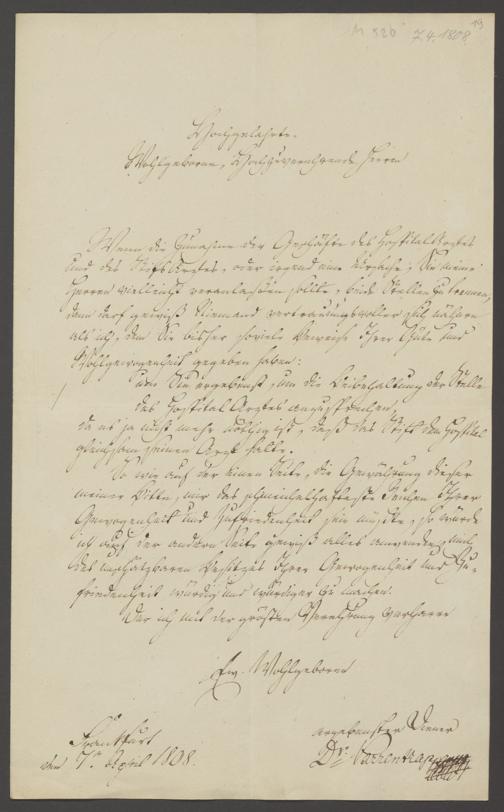 M 526
7.4.1808.
19
Hochgelahrte.
Wohlgeborne, Hochzuverehrende Herrn
Wenn die Zunahme der Geschäfte des Hospital Arztes
und des Stifts Arztes, oder irgend eine Ursache, Sie meine
Herren vielleicht veranlassen sollte, beide Stellen zu trennen,
dann darf gewiß Niemand vertrauungsvoller sich nähern
als ich, dem Sie bisher soviele Beweise Ihrer Güte und
Wohlgewogenheit gegeben haben:
Sie ergebenst, um die Beibehaltung der Stelle
des Hospital Arztes anzusprechen,
da es ja nicht mehr nöthig ist, daß das Stift dem Hospital
gleichsam seinen Arzt halte.
So wie auf der einen Seite, die Gewährung dieser
meiner Bitte, mir das schmeichelhafteste Zeichen Ihrer
Gewogenheit und Zufriedenheit sein müßte, so würde
ich auf der andern Seite gewiß alles anwenden, mich
des unschätzbaren Besitzes Ihrer Gewogenheit und Zu-
friedenheit würdig und würdiger zu machen.
Der ich mit der größten Verehrung verharre
Ew. Wohlgeborne
ergebenster Diener
Frankfurt
den 7n April 1808.
Dr. Varrentrapp